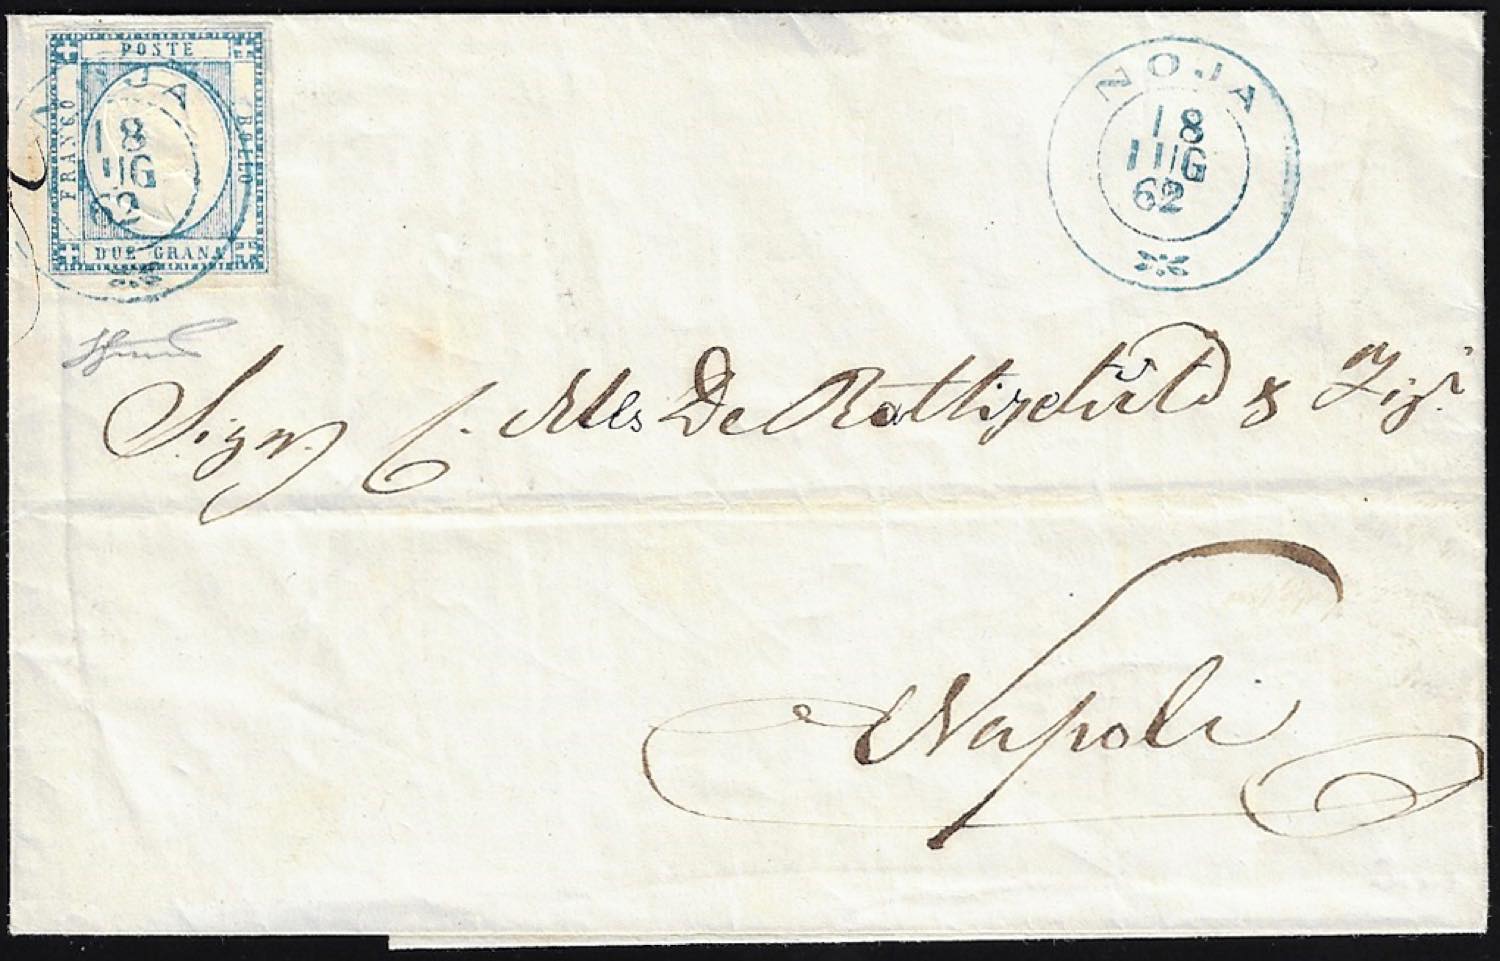 POSTE
FRANCO
BOLLO
DUE GRANA
NOJA
18
LUG
62
NOJA
18
LUG
62
Sign. C. Mls De Rothschild & Figl.
Napoli